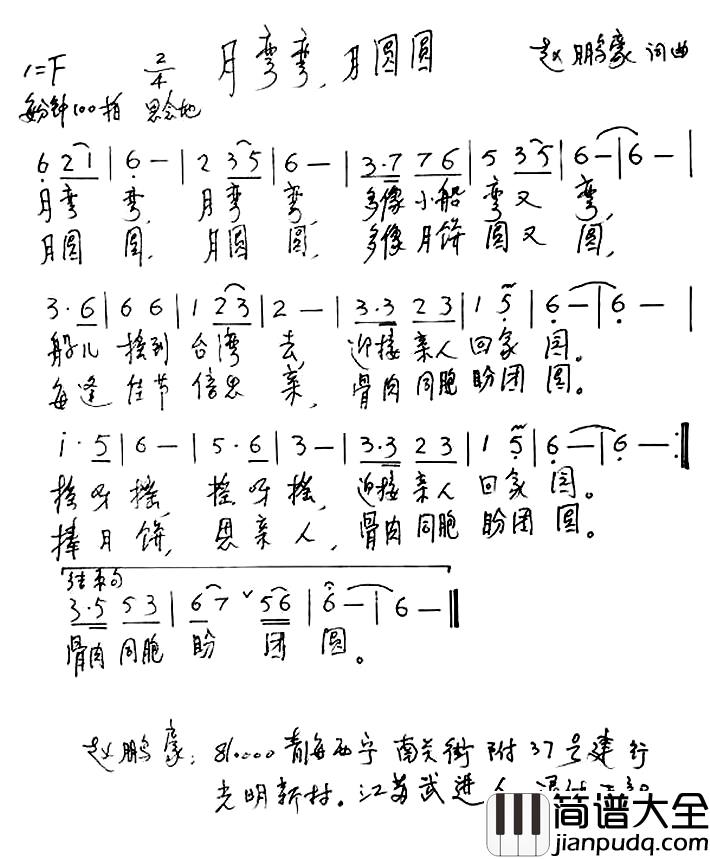 月弯弯,月圆圆
1=F 2/4 赵鹏豪 词曲
每分钟100拍 思念地
6 2 1 | 6 — | 2 3 5 | 6 — | 3·7 7 6 | 5 3 5 | 6 — | 6 — |
月弯 弯, 月弯 弯, 多像小船 弯又 弯,
月圆 圆, 月圆 圆, 多像月饼 圆又 圆,
3·6 | 6 6 | 1 2 3 | 2 — | 3·3 2 3 | 1 5 | 6 — | 6 — |
船儿 摇到 台湾 去, 迎接亲人 回家 园。
每逢 佳节 倍思 亲, 骨肉同胞 盼团 圆。
i·5 | 6 — | 5·6 | 3 — | 3·3 2 3 | 1 5 | 6 — | 6 — :||
摇呀 摇, 摇呀 摇, 迎接亲人 回家 园。
捧月 饼, 思亲 人, 骨肉同胞 盼团 圆。
结束句
3·5 5 3 | 6 7 ˅ 5 6 | 6 — | 6 — ||
骨肉同胞 盼 团 圆。
赵鹏豪: 810000 青海西宁 南关街 附37号建行
光明新村。江苏武进人
简谱大全
jianpudq.com